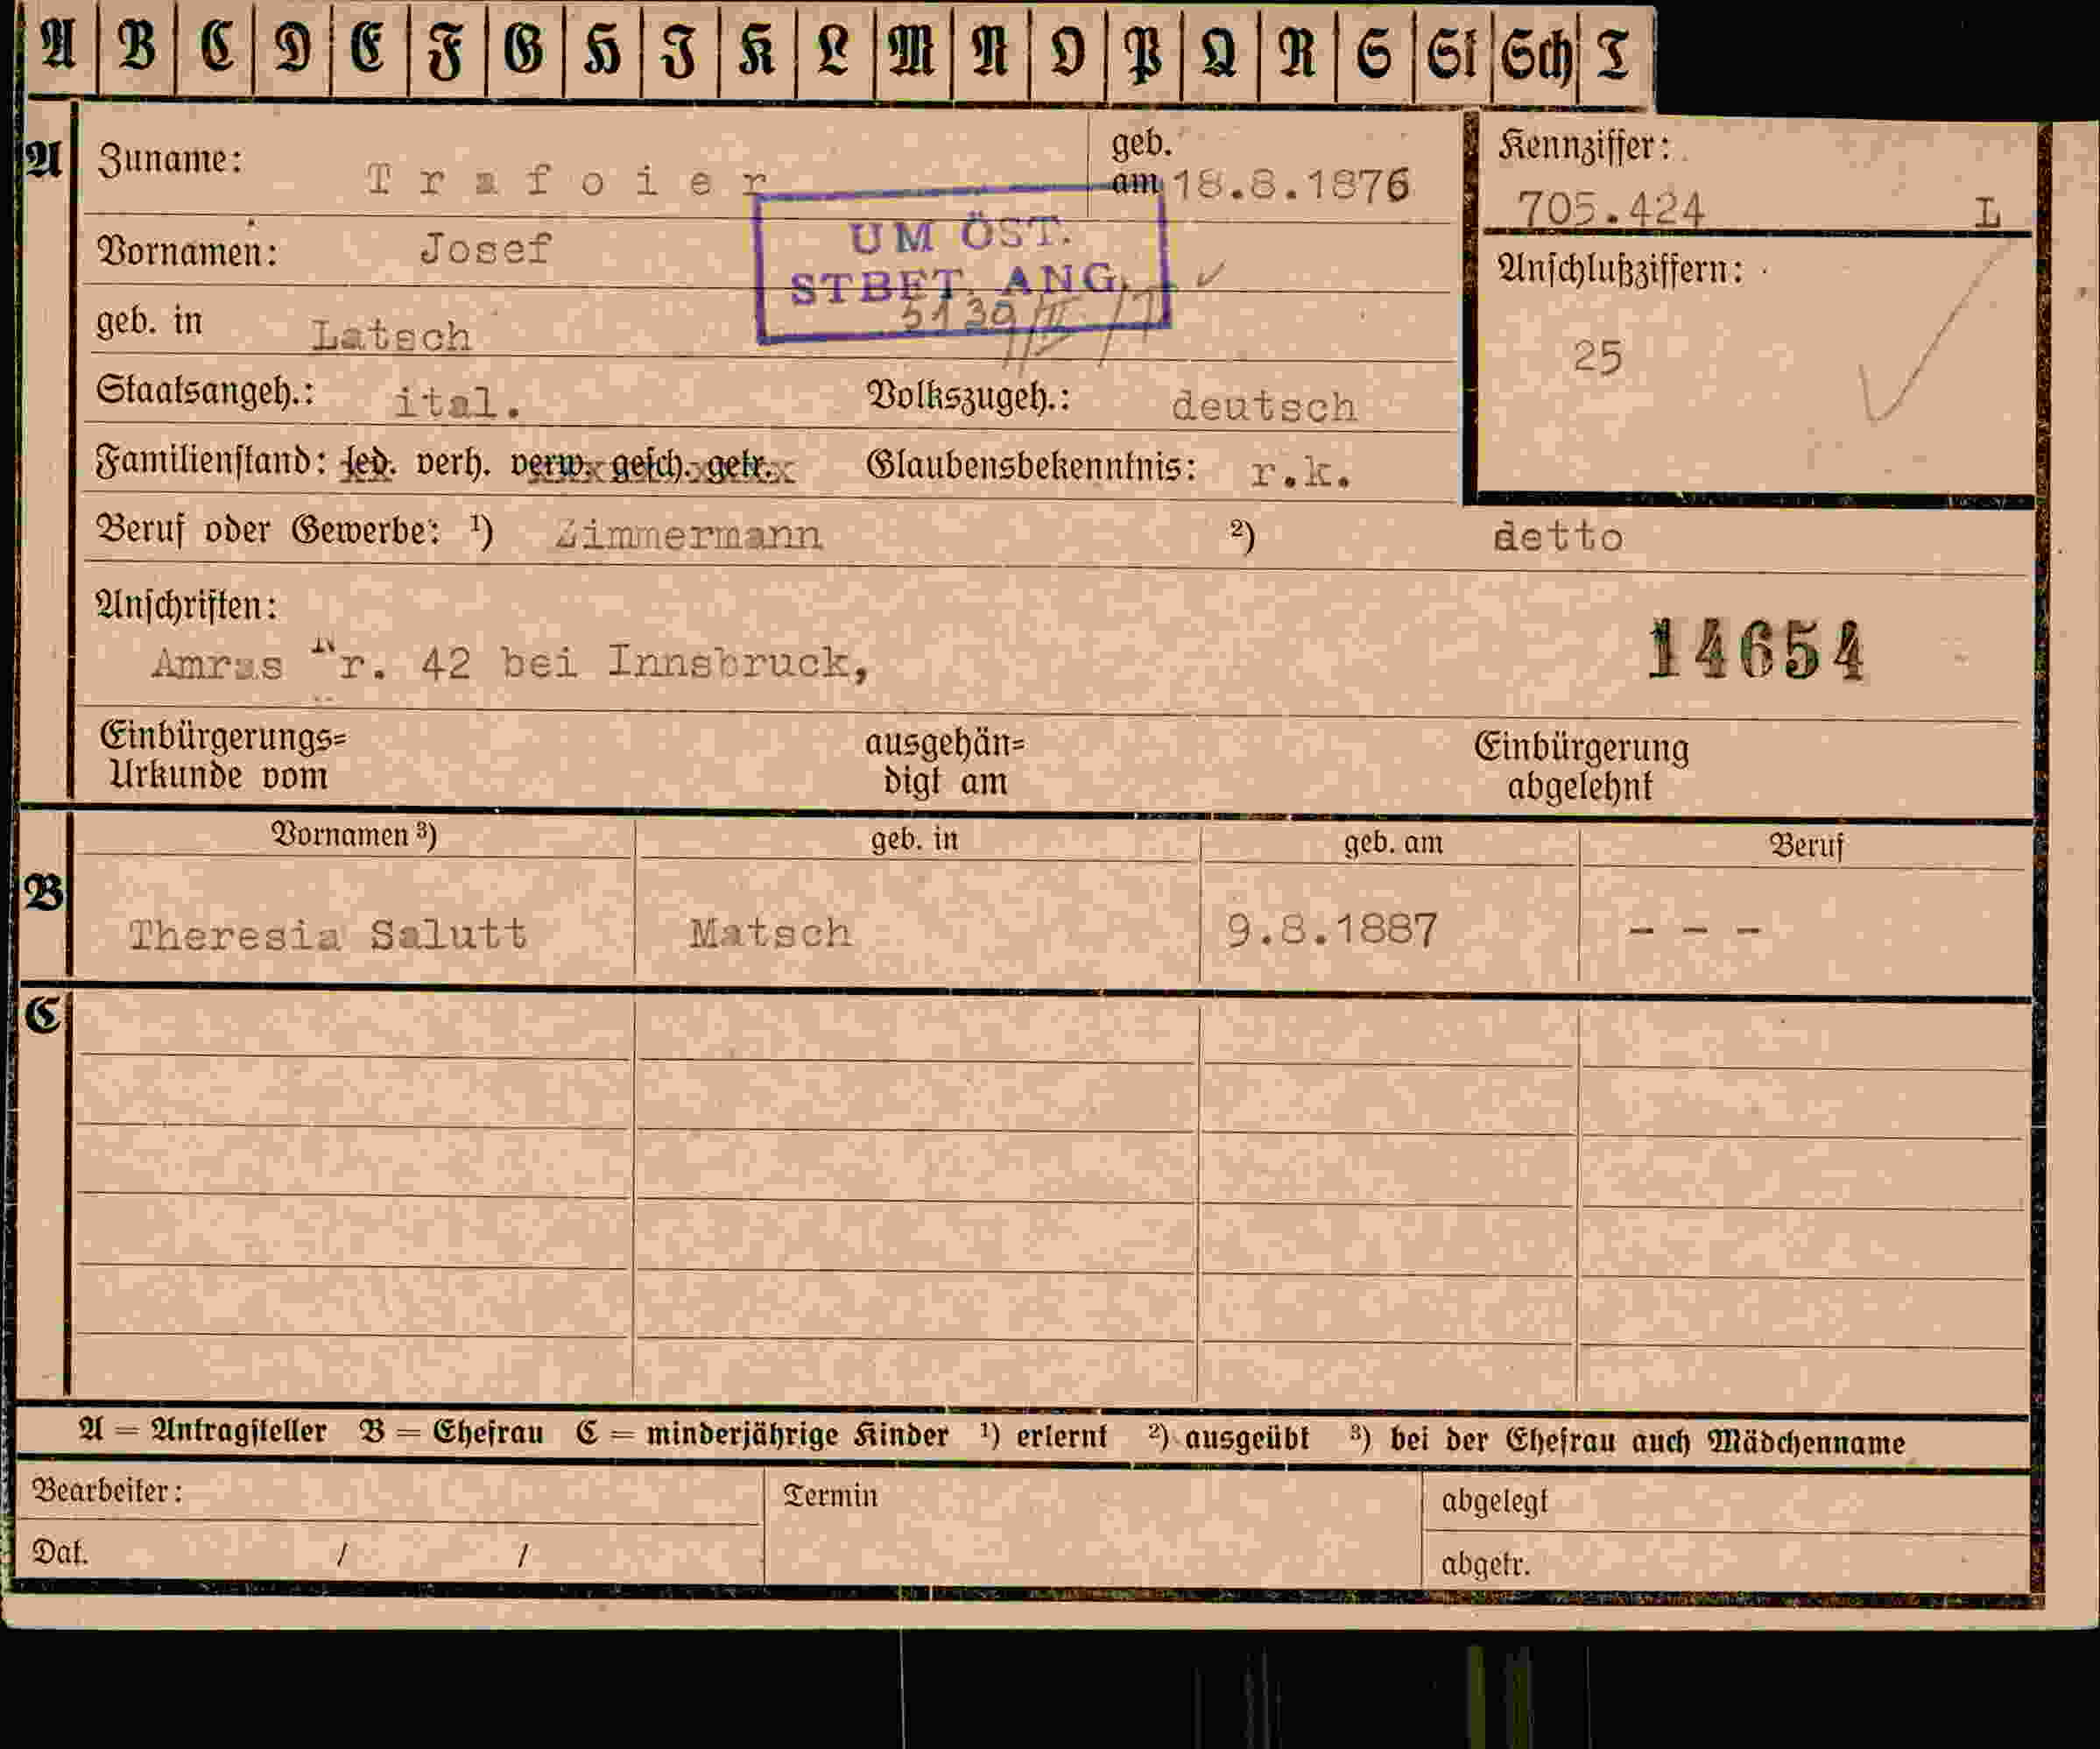 A B C D E F G H I K L M N O P Q R S St Sch T
A Zuname: Trafoier geb. am 18.8.1876
Kennziffer: 705.424 L
Vornamen: Josef
UM ÖST.
STBET. ANG.
Anschlußziffern: 25
geb. in Latsch
Staatsangeh.: ital. Volkszugeh.: deutsch
Familienstand: led. verh. verw. gesch. getr. Glaubensbekenntnis: r.k.
Beruf oder Gewerbe: ¹) Zimmermann ²) detto
Anschriften:
14654
Amras Nr. 42 bei Innsbruck,
Einbürgerungs=
Urkunde vom
ausgehän=
digt am
Einbürgerung
abgelehnt
Vornamen ³) geb. in geb. am Beruf
B Theresia Salutt Matsch 9.8.1887 - - -
C
A = Antragsteller B = Ehefrau C = minderjährige Kinder ¹) erlernt ²) ausgeübt ³) bei der Ehefrau auch Mädchenname
Bearbeiter: Termin abgelegt
Dat. / / abgetr.